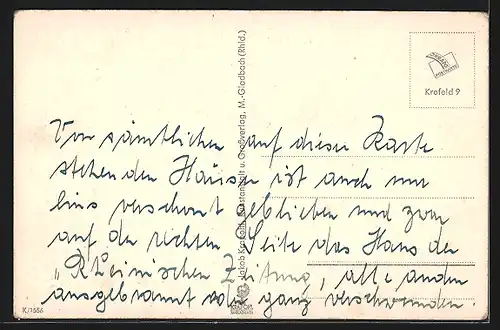 Krefeld 9
Von sämtlichen auf dieser Karte
stehenden Häuser ist auch nur
eins verschont geblieben und zwar
auf der rechten Seite das Haus der
"Rheinischen Zeitung, alle anderen
ausgebrannt oder ganz verschwunden.
Jakob Krapohl, Kunstanstalt u. Großverlag, M.-Gladbach (Rhld.)
K/1586